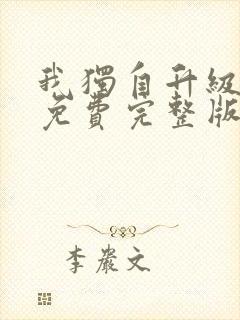 我獨自升級
免費完整版
李嚴文